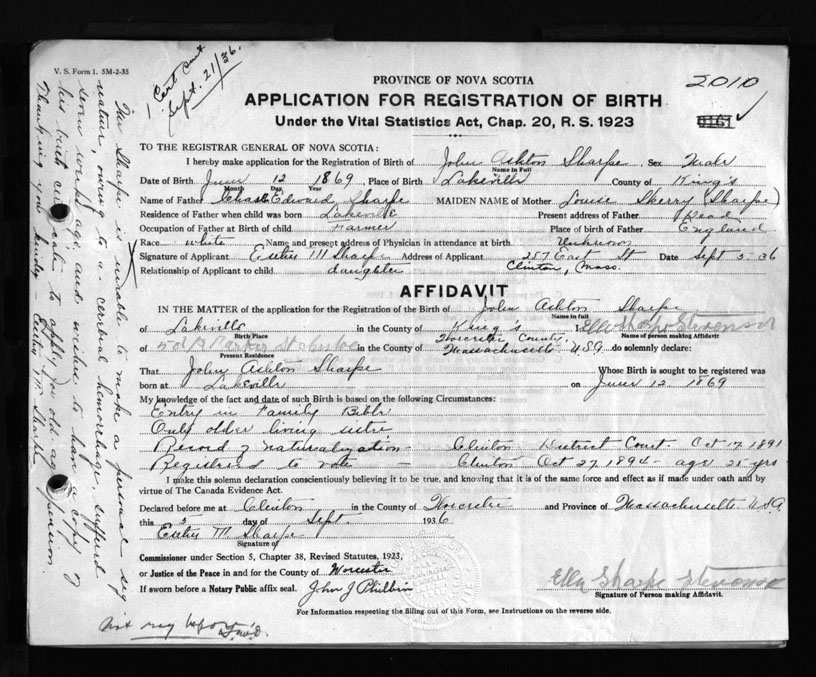 V. S. Form 1. 5M-2-35
1 Cert sent
Sept. 21/36.
2010
PROVINCE OF NOVA SCOTIA
APPLICATION FOR REGISTRATION OF BIRTH
Under the Vital Statistics Act, Chap. 20, R. S. 1923
TO THE REGISTRAR GENERAL OF NOVA SCOTIA:
I hereby make application for the Registration of Birth of John Ashton Sharpe Sex Male
Name in Full
Date of Birth June 12 1869 Place of Birth Lakeville County of King's
Month Day Year
Name of Father Chas Edward Sharpe MAIDEN NAME of Mother Louise Skerry (Sharpe)
Residence of Father when child was born Lakeville Present address of Father Dead
Occupation of Father at Birth of child Farmer Place of birth of Father England
Race white Name and present address of Physician in attendance at birth Unknown
Signature of Applicant M Sharpe Address of Applicant 257 East St Date Sept 5-36
Relationship of Applicant to child daughter Clinton, Mass.
AFFIDAVIT
IN THE MATTER of the application for the Registration of the Birth of John Ashton Sharpe
Name in full
of Lakeville in the County of King's I, Ella Sharpe Stevenson
Birth Place Name of person making Affidavit
of Parker St Clinton in the County of Worcester County, Massachusetts USA do solemnly declare:
Present Residence
That John Ashton Sharpe Whose Birth is sought to be registered was
born at Lakeville on June 12 1869
My knowledge of the fact and date of such Birth is based on the following Circumstances:
Entry in Family Bible
Only older living sister
Record of naturalization - Clinton District Court. Oct 17, 1891
Registered to vote - Clinton Oct 27, 1894 - age 25 yrs
I make this solemn declaration conscientiously believing it to be true, and knowing that it is of the same force and effect as if made under oath and by
virtue of The Canada Evidence Act.
Declared before me at Clinton in the County of Worcester and Province of Massachusetts. USA
this 5 day of Sept. 1936
M Sharpe
Signature of
Commissioner under Section 5, Chapter 38, Revised Statutes, 1923,
or Justice of the Peace in and for the County of Worcester
If sworn before a Notary Public affix seal. John J Philbin
Ella Sharpe Stevenson
Signature of Person making Affidavit.
For Information respecting the filling out of this Form, see Instructions on the reverse side.
Not reg before
Mr Sharpe is unable to make a personal sig-
nature, owing to a cerebral hemorrhage suffered
some weeks ago, and wishes to have a copy of
his birth certificate to apply for old age pension
Thanking you kindly - M Sharpe